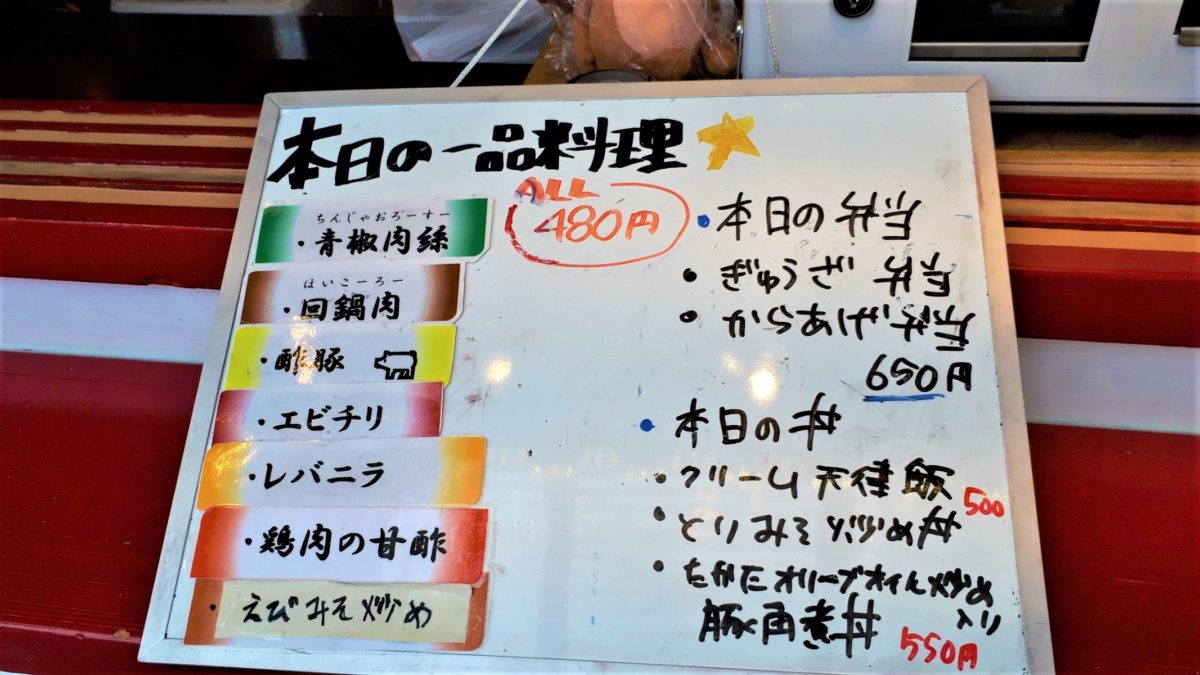 本日の一品料理
ALL
480円
ちんじゃおろーすー
・青椒肉絲
ほいこーろー
・回鍋肉
・酢豚
・エビチリ
・レバニラ
・鶏肉の甘酢
・えびみそ炒め
・本日の弁当
・ぎょうざ弁当
・からあげ弁当
650円
・本日の丼
・クリーム天津飯 500
・とりみそ炒め丼
・オリーブオイル炒め
入り
豚角煮丼 550円